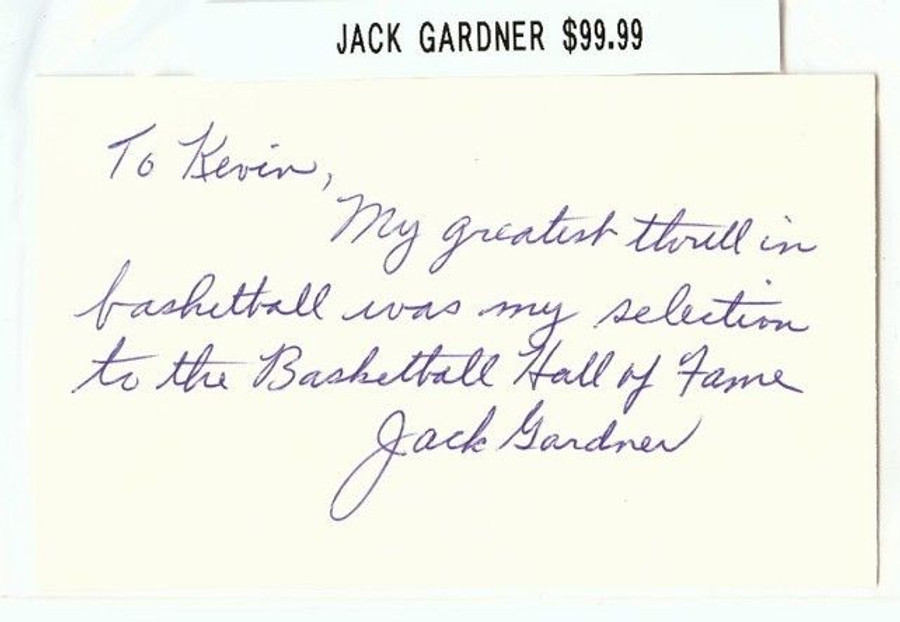 JACK GARDNER $99.99
To Kevin,
My greatest thrill in
basketball was my selection
to the Basketball Hall of Fame
Jack Gardner